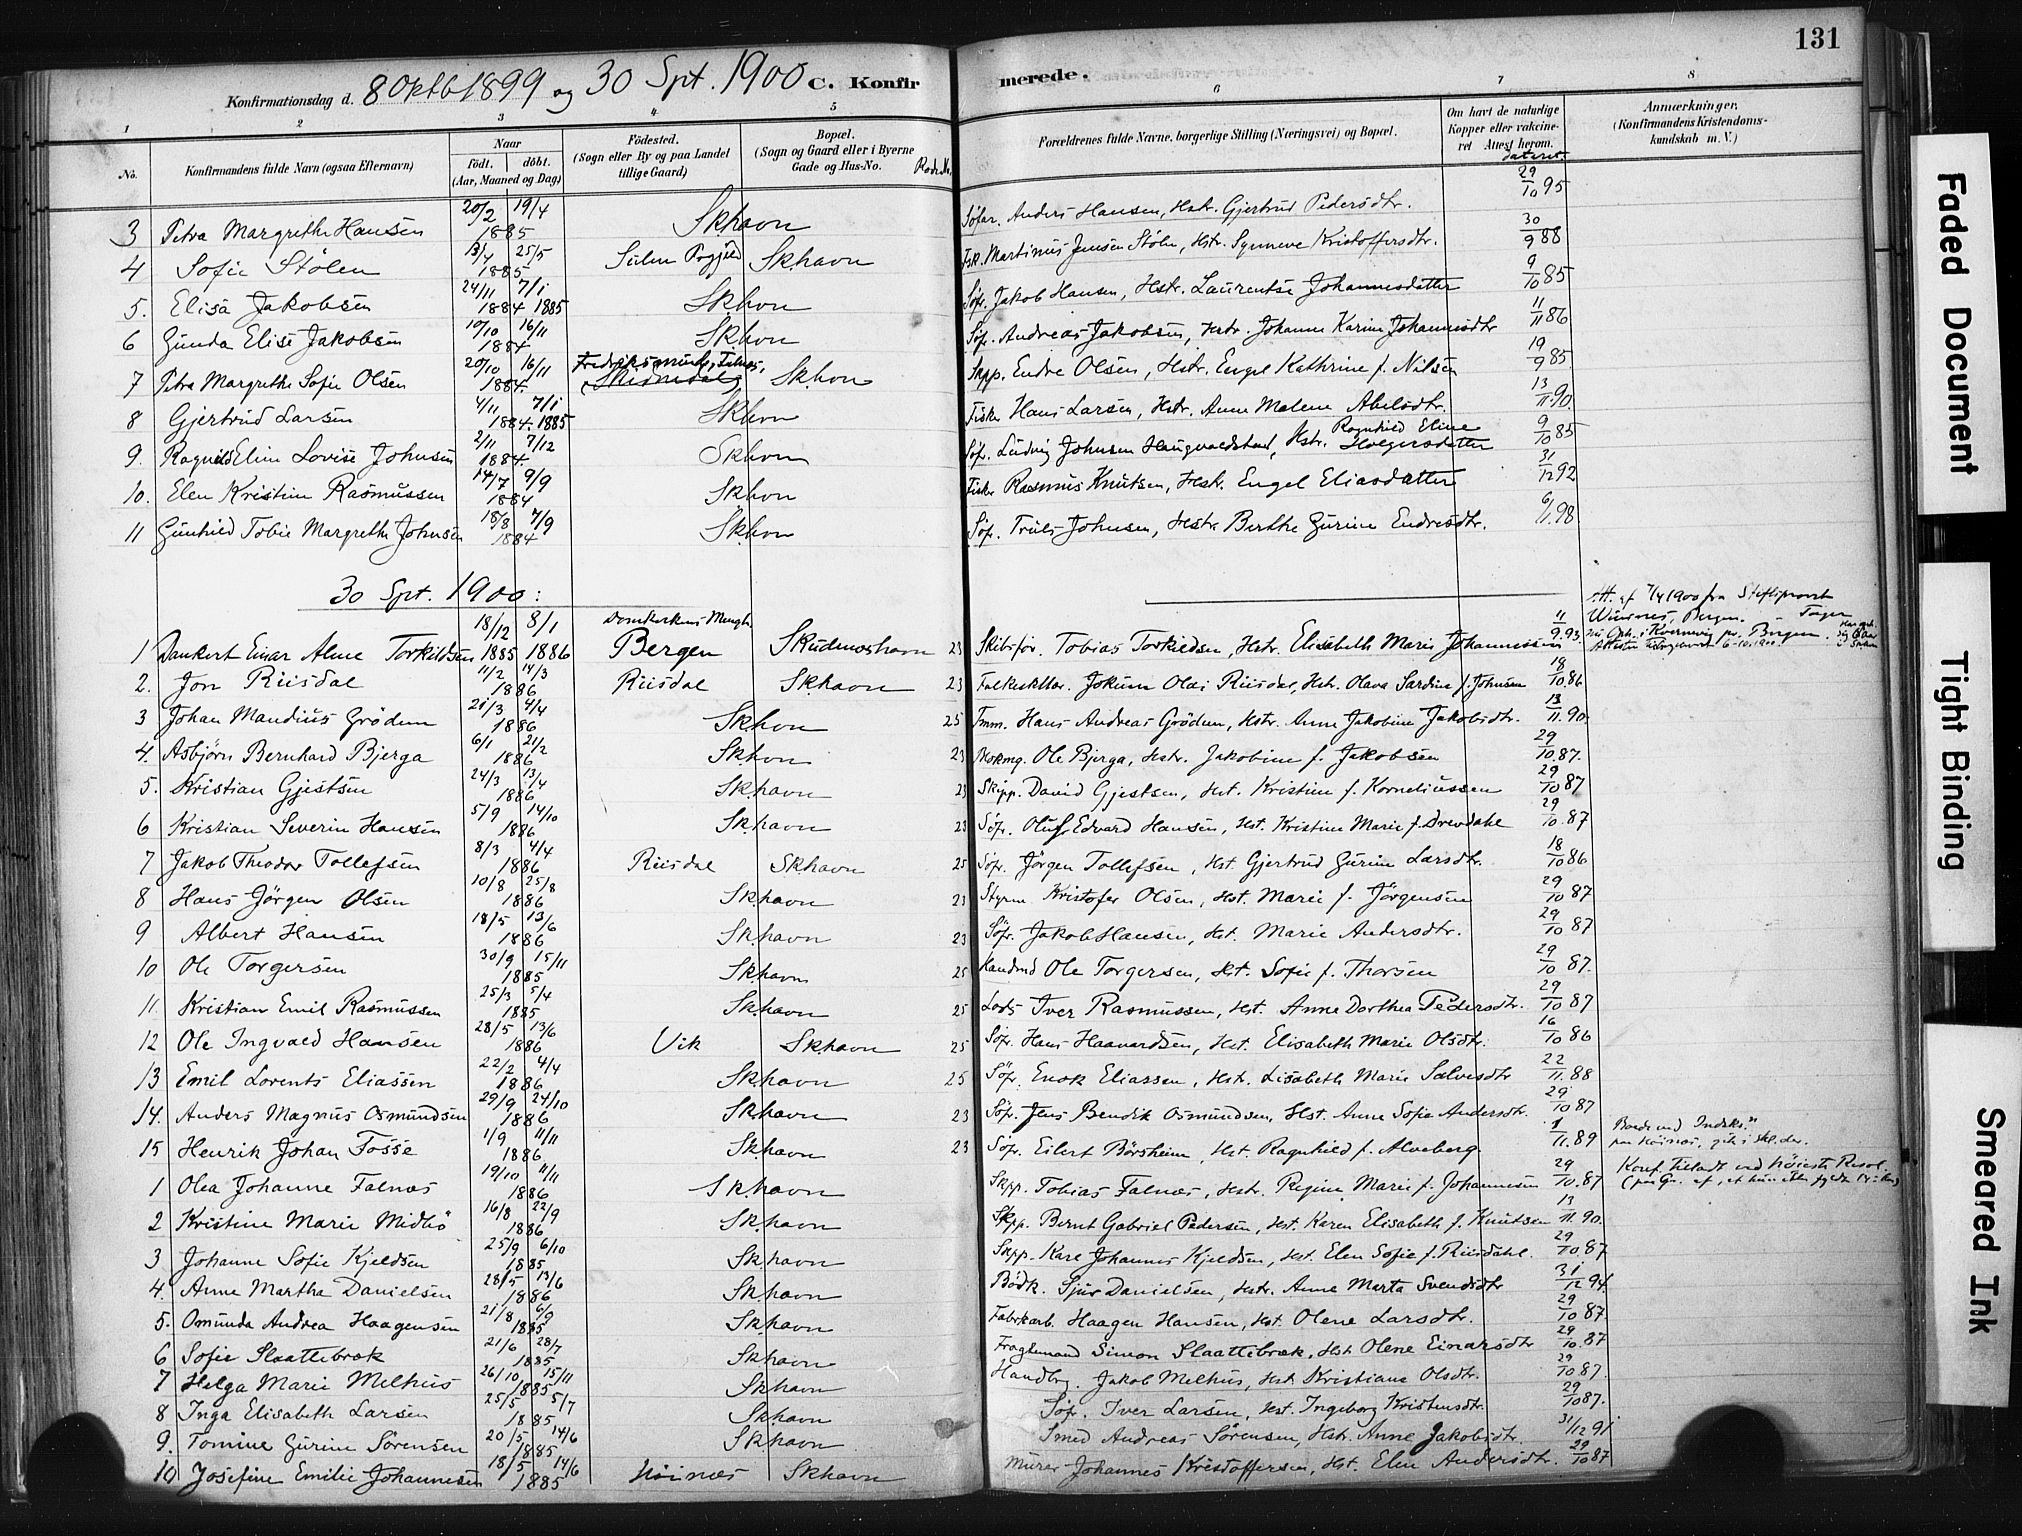 131
Konfirmationsdag d. 8 Oktb 1899 og 30 Spt. 1900 C. Konfirmerede.
1 2 3 4 5 6 7 8
No.
Konfirmandens fulde Navn (ogsaa Efternavn)
Naar
Födt. döbt.
(Aar, Maaned og Dag)
Födested.
(Sogn eller By og paa Landet
tillige Gaard)
Bopæl.
(Sogn og Gaard eller i Byerne
Gade og Hus-No.
Forældrenes fulde Navne, borgerlige Stilling (Næringsvei) og Bopæl.
Om havt de naturlige
Kopper eller vaccine-
ret Attest herom.
dateret.
Anmærkninger.
(Konfirmandens Kristendoms-
kundskab m. V.)
3 Petra Margrethe Hansen 20/2 19/4 1885 Skhavn Anders Hansen, Hstr. Gjertrud Pedersdtr. 29/10 95
4 Sofie Stölen 13/4 25/5 1885 Skhavn Fsk. Martinus Jensen Stölen, Hstr. Synneve Kristoffersdtr. 30/9 88
5. Elisa Jakobsen 24/11 1884 7/1 1885 Skhvn Söf. Jakob Hansen, Hstr. Laurentse Johannesdatter 9/10 85
6 Gunda Elise Jakobsen 10/10 16/11 1884 Skhvn Söf. Andreas Jakobsen, Hstr. Johanne Karine Johannesdtr 11/11 86
7 Petra Margrethe Sofie Olsen 20/10 16/11 1884. Skhvn Skpp. Endre Olsen, Hstr. Engel Kathrine f. Nilsen 19/9 85
8 Gjertrud Larsen 4/11 1884. 7/1 1885 Skhvn Fisker Hans Larsen, Hstr. Anne Malene Abelsdtr. 13/11 90.
9. Ragnild Eline Lovise Johnsen 2/11 7/12 1884. Skhvn Söf. Ludvig Johnsen Haugvaldstad, Hstr. Ragnhild Eline Holgersdatter 9/10 85
10. Elen Kristine Rasmussen 14/7 9/9 1884 Skhvn Fisker Rasmus Knutsen, Hstr. Engel Eliasdatter 31/12 92
11 Gunhild Tobie Margrethe Johnsen 18/8 7/9 1884 Skhvn Söf. Truls Johnsen, Hstr. Berthe Gurine Endresdtr. 6/1. 98
30 Spt. 1900:
1 Dankert Einar Alme Torkildsen 18/12 1885 8/1 1886 Domkirkens Mengh. Bergen Skudeneshavn 23 Skibsför. Tobias Torkildsen, Hstr. Elisabeth Marie Johannessen 11/9. 93.
2. Jon Riisdal 11/2 14/3 1886 Riisdal Skhavn 23 Jokum Olai Riisdal, Hstr. Olava Sardine f. Johnsen 18/10. 86
3 Johan Mandius Grödem 21/3 4/4 1886 Skhvn 25 Tmm. Hans Andreas Grödem, Hstr. Anne Jakobine Jakobsdtr. 13/11. 90.
4. Asbjörn Bernhard Bjerga 6/1 21/2 1886 Skhvn 23 Ole Bjerga, Hstr. Jakobine f. Jakobsen 29/10. 87.
5. Kristian Gjestsen 24/3 13/4 1886 Skhavn 23 Skipp. David Gjestsen, Hst. Kristine f. Korneliussen 29/10 87
6 Kristian Severin Hansen 5/9 14/10 1886 Skhavn 23 Söf. Oluf Edvard Hansen, Hst. Kristine Marie f. Drevdahl 29/10. 87
7 Jakob Theodor Tollefsen 8/3 4/4 1886 Riisdal Skhavn 25 Söf. Jörgen Tollefsen, Hst Gjertrud Gurine Larsdtr. 18/10 86
8 Hans Jörgen Olsen 10/8 25/8 1886 Skhavn 23 Styrm Kristofer Olsen, Hst. Marie f. Jörgensen 29/10 87
9 Albert Hansen 18/5 13/6 1886 Skhavn 23 Söf. Jakob Hansen, Hst. Marie Andersdtr. 29/10 87
10 Ole Torgersen 30/9 15/11 1885 Skhavn 25 Ole Torgersen, Hst. Sofie f. Thorsen 29/10 87.
11. Kristian Emil Rasmussen 25/3 5/4 1885 Skhavn 25 Lods Iver Rasmussen, Hst. Anne Dorthea Pedersdtr. 29/10 87
12 Ole Ingvald Hansen 28/5 13/6 1886 Vik Skhavn 25 Söf. Hans Haavardsen, Hst. Elisabeth Marie Olsdtr. 16/10 86
13 Emil Lorents Eliassen 22/2 4/4 1886 Skhavn 25 Söf. Enok Eliassen, Hst. Lisabeth Marie Salvesdtr 22/11. 88
14. Anders Magnus Osmundsen 29/9 24/10 1886 Skhavn 23 Söf. Jens Bendik Osmundsen, Hst. Anne Sofie Andersdtr. 29/10 87
15 Henrik Johan Fosse 1/9 11/11 1886 Skhavn 23 Söf. Eilert Börsheim, Hst. Ragnhild f. Alveberg 1/11. 89
1 Olea Johanne Falnes 19/10 11/11 1886 Skhavn Skpp. Tobias Falnes, Hstr. Regine Marie f. Johannesen 29/10. 87
2 Kristine Marie Midbö 16/8 22/9 1886 Skhavn Skpp. Bernt Gabriel Pedersen, Hst. Karen Elisabeth f. Knutsen 13/11. 90.
3 Johanne Sofie Kjeldsen 25/9 6/10 1885 Skhavn Skpp. Karl Johannes Kjeldsen, Hst. Elen Sofie f. Riisdahl. 29/10. 87
4. Anne Martha Danielsen 28/5 13/6 1886 Skhavn Bödk. Sjur Danielsen, Hstr. Anne Marta Svendsdtr 31/12 94.
5. Omunda Andrea Haagensen 21/8 6/9 1885 Skhavn Fabrkarb. Haagen Hansen, Hst. Olene Larsdtr. 29/10 87
6 Sofie Slaattebræk 21/6 28/7 1885 Skhavn Simon Slaattebræk, Hst Olene Einarsdtr 29/10. 87
7 Helga Marie Melhus 26/10 15/11 1885 Skhavn Jakob Melhus, Hst Kristiane Olsdtr. 29/10 87.
8 Inga Elisabeth Larsen 25/5 5/7 1885 Skhavn Söf. Iver Larsen, Hst. Ingeborg Kristensdtr. 29/10 87.
9. Tomine Gurine Sörensen 20/5 14/6 1885 Skhavn Smed Andreas Sörensen, Hstr. Anne Jakobsdtr. 31/12 91
10 Josefine Emilie Johannesen 18/5 14/6 1885 Höinæs Skhavn Murer Johannes Kristoffersen, Hst. Elen Andersdtr. 29/10 87
Faded Document
Tight Binding
Smeared Ink